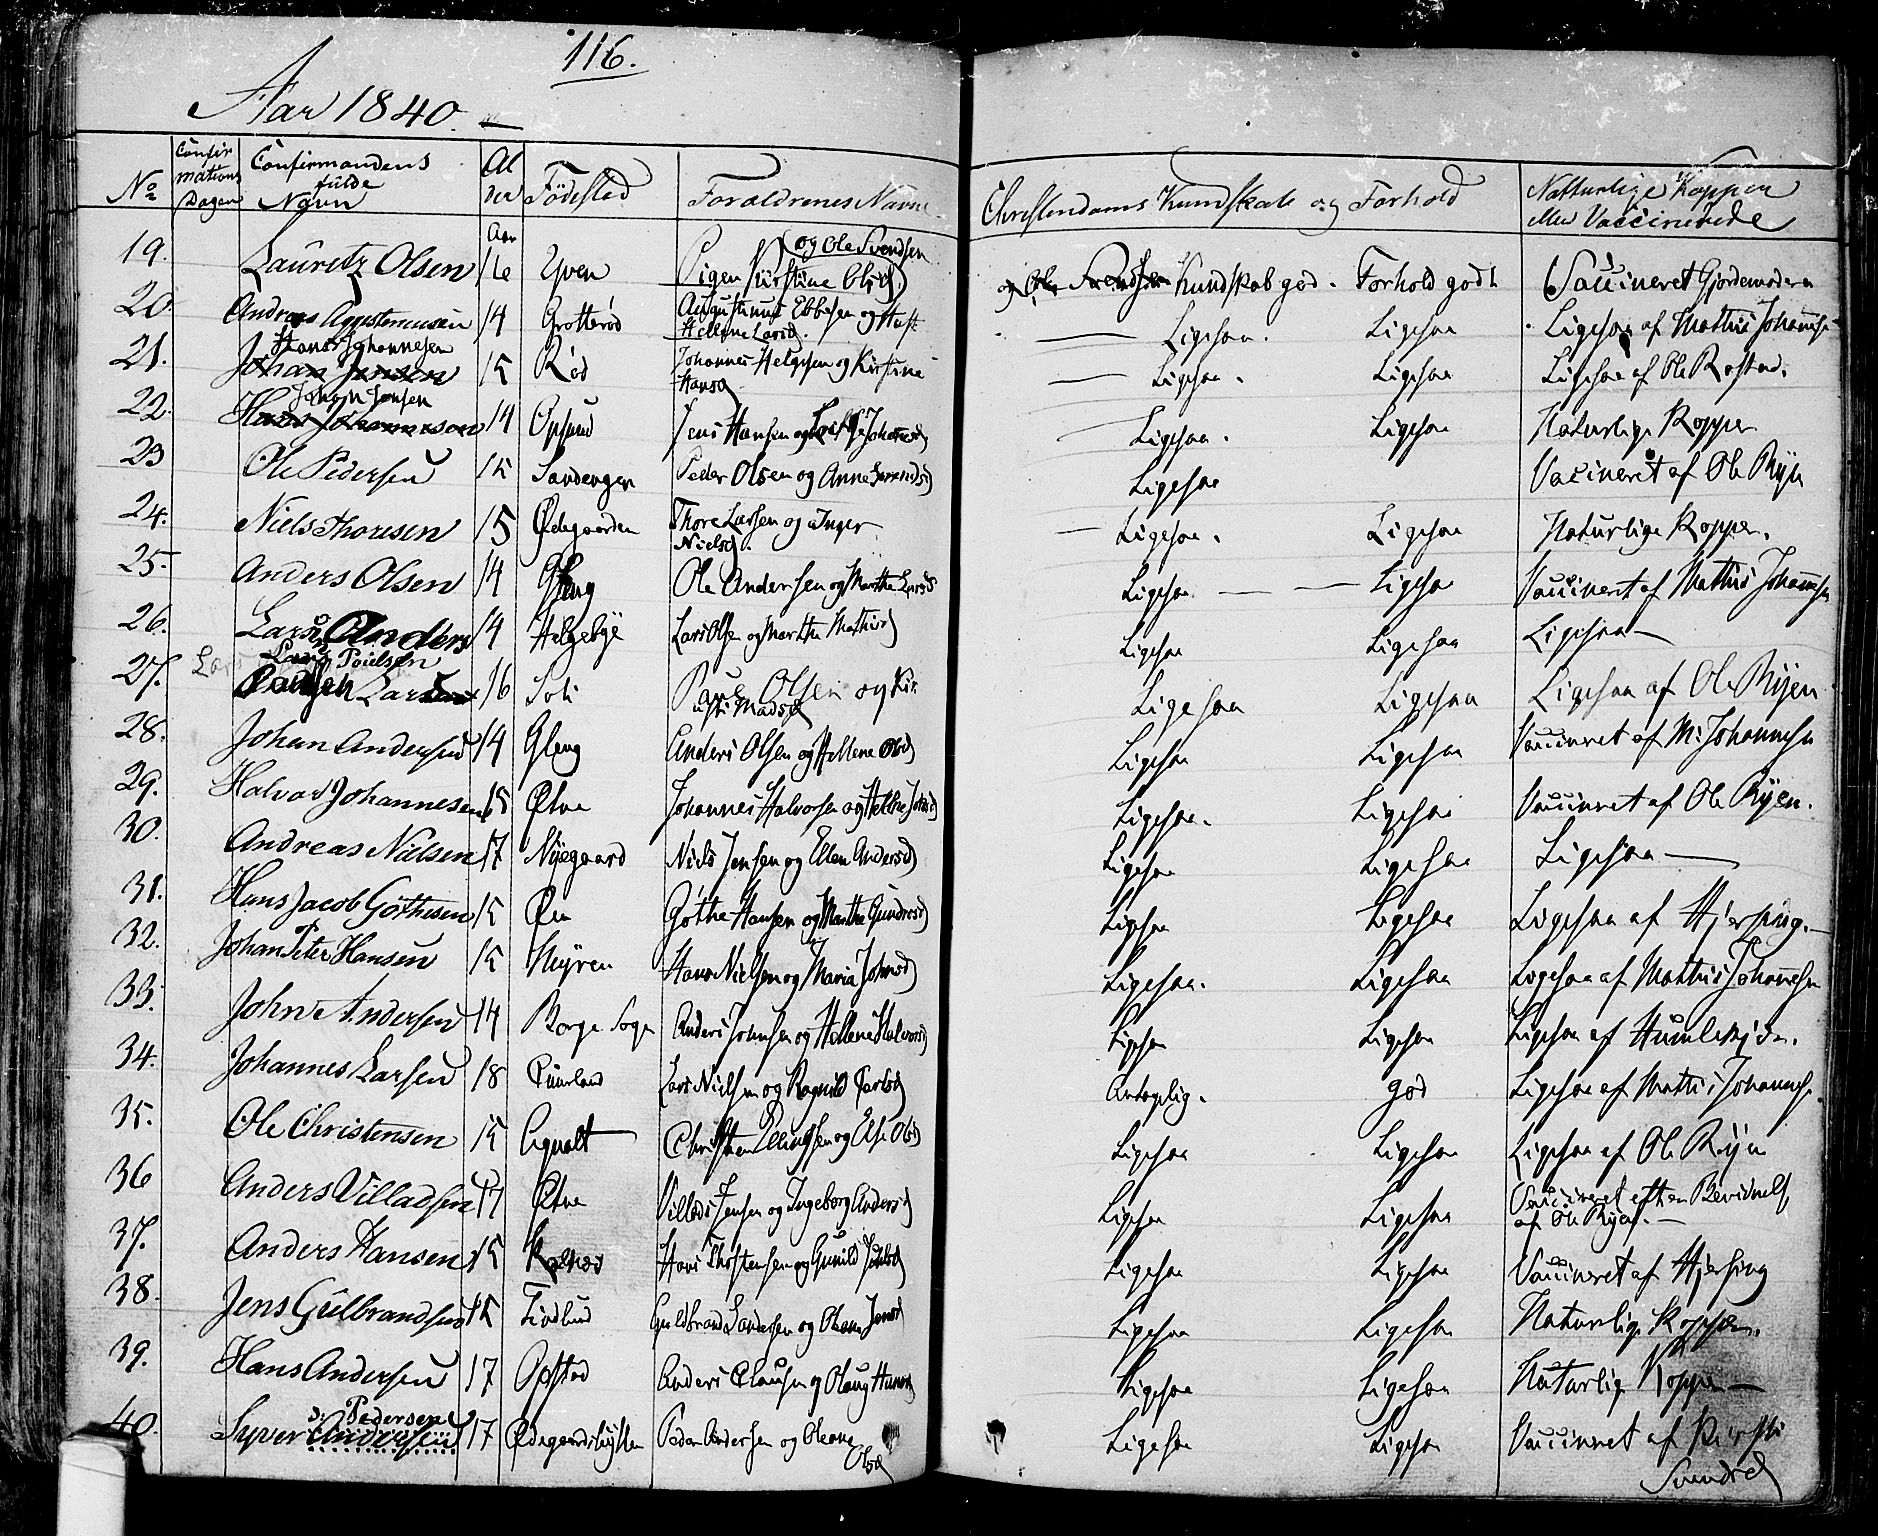 116.
Aar 1840.
No Confirmations Dagen Confirmandens fulde Navn Alder Födested Forældrenes Navne Christendoms Kundskab og Forhold Naturlige Koppen eller Vaccinerede
19. Lauritz Olsen Aar 16 Yven Pigen Kirstine Olsd. (og Ole Svendsen og Ole Svendsen Kundskab god. Forhold godt Vaccineret Gjordemoderen
20. Andreas Agustenusen 14 Grotterød Augustinus Ebbesen og Hellene Larsd. Ligesaa. Ligesaa Ligesaa af Mathis Johannes
21. Johan Jensen Hans Johannesen 15 Rød Johannes Helgesen og Kirstine Hansd Ligesaa. Ligesaa Ligesaa af Ole Rostad.
22. Hans Johannesen Johan Jensen 14 Opsund Jens Hansen og Johannesd Ligesaa. Ligesaa Naturlige Kopper
23 Ole Pedersen 15 Sandengen Peder Olsen og Anne Ligesaa Vacineret af Ole Ryen
24. Niels Thoresen 15 Ødegaarden Thore Larsen og Inger Nielsd. Ligesaa. Ligesaa Naturlige Kopper.
25. Anders Olsen 14 Gleng Ole Andersen og Marthe Larsd Ligesaa Ligesaa Vaccineret af Mathis Johannesen
26. Lars Anders 14 Helgebye Lars Olsen og Marthe Mathisd Ligesaa Ligesaa Ligesaa
27. Lars Poulsen Larsen 16 Soli Paul Olsen og Kirsti Madsd Ligesaa Ligesaa Ligesaa af Ole Ryen
28. Johan Andersen 14 Gleng Anders Olsen og Hellene Olsd Ligesaa Ligesaa Vaccineret af M. Johannesen
29. Halvor Johannesen 15 Ø Johannes Halvorsen og Hellene Ligesaa. Ligesaa Vaccineret af Ole Ryen.
30. Andreas Nielsen 17 Nyegaard Niels Jensen og Ellen Andersd Ligesaa Ligesaa Ligesaa
31. Hans Jacob Göthesen 15 Øen Göthe Hansen og Marthe Gundersd Ligesaa Ligesaa Ligesaa af Hjersing.
32. Johan Peter Hansen 15 Myren Hans Nielsen og Maria Johnsd Ligesaa. Ligesaa Ligesaa af Mathis Johannesen
33. John Andersen 14 Borge Sogn Anders Johnsen og Hellene Halvorsd Ligesaa Ligesaa Ligesaa af
34. Johannes Larsen 18 Lars Nielsen og Ragnild Carlsd Antagelig. god Ligesaa af Mathis Johannes
35. Ole Christensen 15 Agnalt Christen Ellingsen og Else Olsd Ligesaa Ligesaa Ligesaa af Ole Ryen
36 Anders Villadsen 17 Villads Jensen og Ingeborg Andersd Ligesaa Ligesaa Vaccineret efter Bevidnelse af Ole Ryen.
37. Anders Hansen 15 Hans Thostensen og Gunild Ligesaa Ligesaa Vaccineret af Hjersing
38. Jens Gulbrandsen 15 Tindlund Guldbrand Andersen og Oleane Jensd Ligesaa Ligesaa Naturlige Kopper.
39. Hans Andersen 17 Opstad Anders Clausen og Olaug Hansd Ligesaa Ligesaa Naturlige Kopper
40. Syver Andersen Pedersen 17 Ødegaardshytten Peder Andersen og Oleane Olsd Ligesaa Ligesaa Vaccineret af Kirsti Svendsd